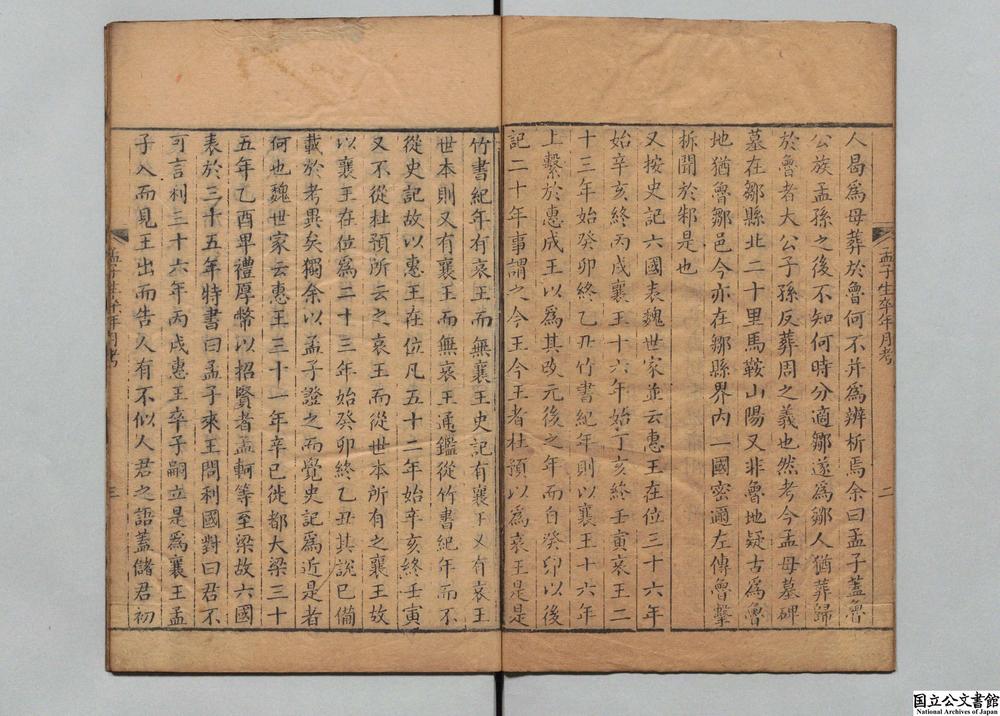 人曷爲母葬於魯何不并爲辨析焉余曰孟子蓋魯
公族孟孫之後不知何時分適鄒遂爲鄒人猶葬歸
於魯者大公子孫反葬周之義也然考今孟母墓碑
墓在鄒縣北二十里馬鞍山陽又非魯地疑古爲魯
地猶魯鄒邑今亦在鄒縣界內一國密邇左傳魯擊
柝聞於邾是也
又按史記六國表魏世家並云惠王在位三十六年
始辛亥終丙戌襄王十六年始丁亥終壬寅哀王二
十三年始癸卯終乙丑竹書紀年則以襄王十六年
上繫於惠成王以爲其改元後之年而自癸卯以後
記二十年事謂之今王今王者杜預以爲哀王是是
孟子生卒年月考
二
竹書紀年有哀王而無襄王史記有襄王又有哀王
世本則又有襄王而無哀王通鑑從竹書紀年而不
從史記故以惠王在位凡五十二年始辛亥終壬寅
又不從杜預所云之哀王而從世本所有之襄王故
以襄王在位爲二十三年始癸卯終乙丑其說已備
載於考異矣獨余以孟子證之而覺史記爲近是者
何也魏世家云惠王三十一年辛巳徙都大梁三十
五年乙酉卑禮厚幣以招賢者孟軻等至梁故六國
表於三十五年特書曰孟子來王問利國對曰君不
可言利三十六年丙戌惠王卒子嗣立是爲襄王孟
子入而見王出而告人有不似人君之語蓋儲君初
孟子生卒年月考
三
国立公文書館
National Archives of Japan